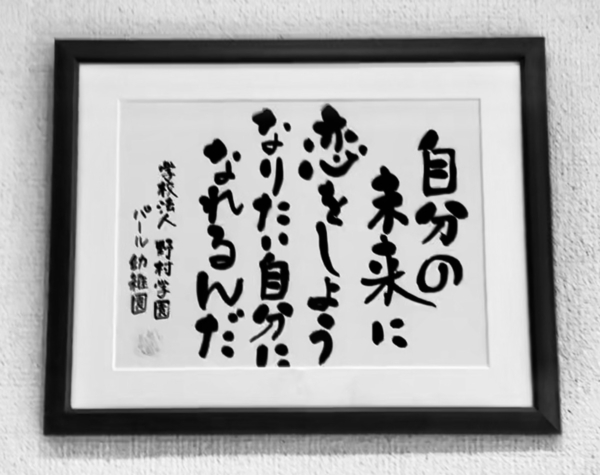 自分の
未来に
恋をしよう
なりたい自分に
なれるんだ
学校法人 野村学園
パール幼稚園